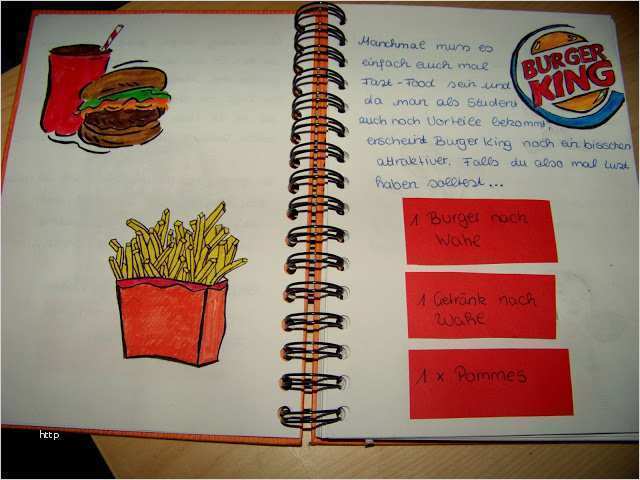 Manchmal muss es
einfach auch mal
Fast-Food sein und
da man als Student
auch noch Vorteile bekommt,
erscheint Burger King noch ein bisschen
attraktiver. Falls du also mal Lust
haben solltest...
BURGER
KING
1 Burger nach
Wahl
1 Getränk nach
Wahl
1 x Pommes
http